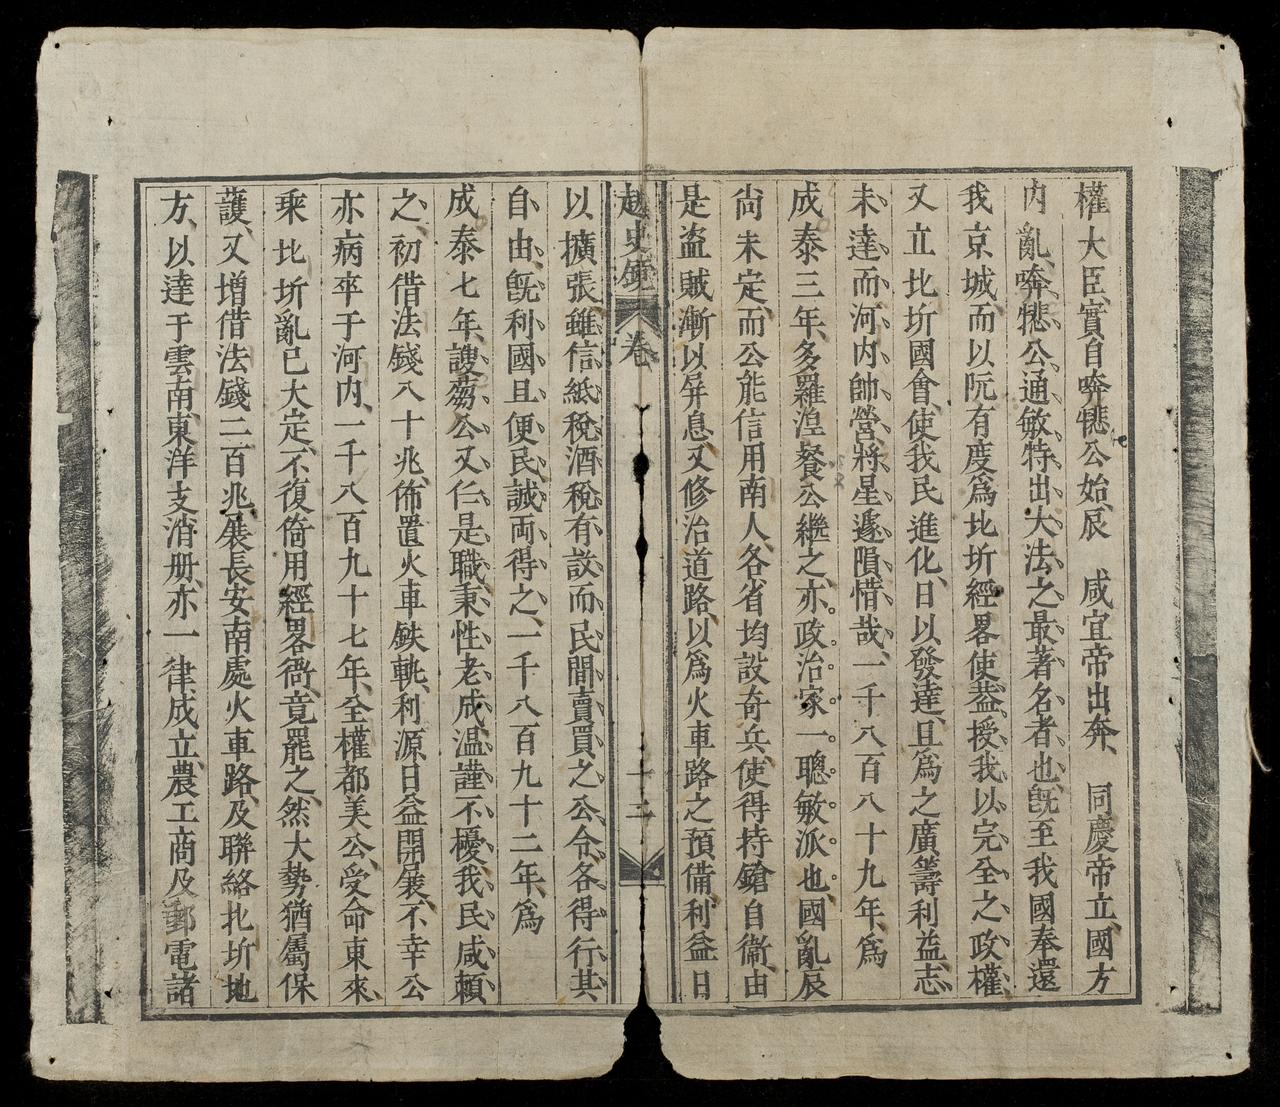 權大臣、實自㗢㹃公始、辰　咸宜帝出奔、　同慶帝立、國方
內亂、㗢㹃公通敏特出、大法之最著名者也、旣至我國、奉還
我京城、而以阮有度爲北圻經畧使、葢授我以完全之政權、
又立北圻國會、使我民進化、日以發達、且爲之廣籌利益、志
未達、而河內帥營、將星遽隕、惜哉、一千八百八十九年、爲
成泰三年、多羅湟餐公繼之、亦政治家一聰敏派也、國亂辰
尙未定、而公能信用南人、各省均設奇兵、使得持鎗自衞、由
是盜賊漸以屏息、又修治道路、以爲火車路之預備、利益日
越史鏡　卷　十二
以擴張、雖信紙稅酒稅有設、而民間賣買之公、令各得行其
自由、旣利國且便民、誠兩得之、一千八百九十二年、爲
成泰七年、謏蒭公又仁是職、秉性老成溫謹、不擾我民、咸賴
之、初借法錢八十兆、佈置火車鉄軌、利源日益開展、不幸公
亦病卒于河內、一千八百九十七年、全權都美公、受命東來、
乘北圻亂已大定、不復倚用經畧衙、竟罷之、然大勢猶屬保
護、又增借法錢二百兆、展長安南處火車路、及聯絡北圻地
方、以達于雲南、東洋支消册、亦一律成立、農工商及郵電諸